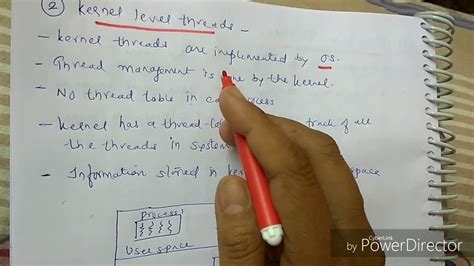 ② Kernel level threads -
- Kernel threads are implemented by OS.
- Thread management is by the kernel.
- No thread table in
- Kernel has a thread track of all
the threads in system
- Information stored in space
Process
User space
CyberLink
by PowerDirector